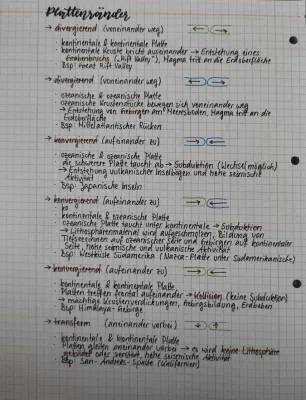 Plattenränder
→ divergierend (voneinander weg)
· kontinentale & kontinentale Platte
· kontinentale Kruste bricht auseinander → Entstehung eines
Grabenbruchs ("Rift Valley"), Magma tritt an die Erdoberfläche
· Bsp: Great Rift Valley
→ divergierend (voneinander weg)
· ozeanische & ozeanische Platte
· ozeanische Krustenstücke bewegen sich voneinander weg
→ Entstehung von Gebirgen am Meeresboden, Magma tritt an die
Erdoberfläche
· Bsp: Mittelatlantischer Rücken
→ konvergierend (aufeinander zu)
· ozeanische & ozeanische Platte
· die schwerere Platte taucht ab → Subduktion (Wechsel möglich)
→ Entstehung vulkanischer Inselbögen und hohe seismische
Aktivität
· Bsp: Japanische Inseln
→ konvergierend (aufeinander zu)
· kontinentale & ozeanische Platte
· ozeanische taucht unter kontinentale → Subduktion
→ Lithosphärenmaterial wird aufgeschmolzen, Bildung von
Tiefseerinnen auf ozeanischer Seite und Gebirgen auf kontinentaler
Seite, hohe seismische und vulkanische Aktivität
· Bsp: Westküste Südamerika (Nazca-Platte unter Südamerikanische)
→ konvergierend (aufeinander zu)
· kontinentale & kontinentale Platte
· Platten treffen frontal aufeinander → Kollision (keine Subduktion)
→ mächtige Krustenverdickungen, Gebirgsbildung, Erdbeben
· Bsp: Himalaya-Gebirge
→ transform (aneinander vorbei)
· kontinentale & kontinentale Platte
· Platten gleiten aneinander vorbei → es wird keine Lithosphäre
gebildet oder zerstört, hohe seismische Aktivität
· Bsp: San-Andreas-Spalte (Kalifornien)